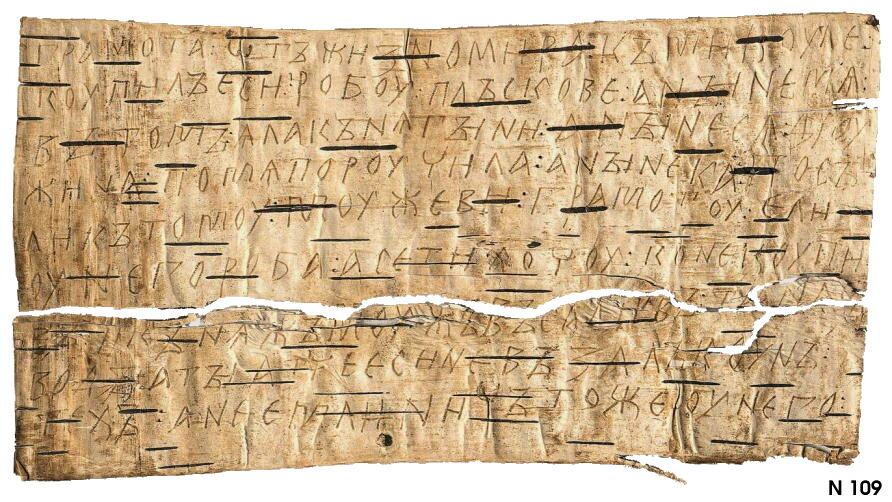 грамота : ѡтъ жизномира къ микоуле :
коупилъ еси : робоу : плъскове : а нꙑне мѧ :
въ томъ : ѧла кънѧгꙑни : а нꙑне сѧ дроу
жина : по мѧ пороучила : а нꙑне ка : посъ
ли къ томоу : моужеви : грамотоу : е ли
оу него роба : а се ти хочоу : коне коупи
въ : и кънѧжъ моужъ въсадивъ : та на съ
водꙑ : а тꙑ атче еси не възалъ коунъ :
техъ : а не емли : ничъто же оу него :
N 109